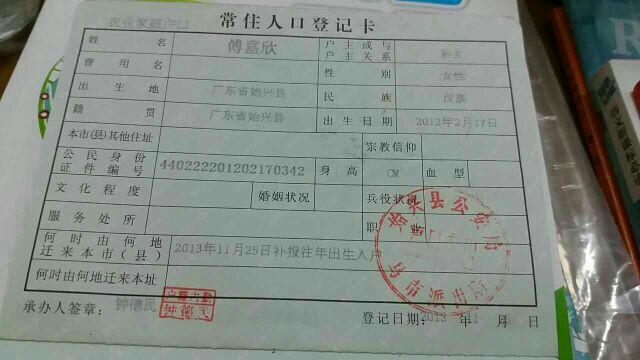 农业家庭户口
常住人口登记卡
姓名 傅嘉欣 户主或与户主关系 孙女
曾用名 性别 女性
出生地 广东省始兴县 民族 汉族
籍贯 广东省始兴县 出生日期 2012年2月17日
本市(县)其他住址 宗教信仰
公民身份证件编号 440222201202170342 身高 CM 血型
文化程度 婚姻状况 兵役状况
服务处所 职业
何时由何地迁来本市(县) 2013年11月25日补报往年出生入户
何时由何地迁来本址
承办人签章: 钟德民 登记日期: 2013年11月 日